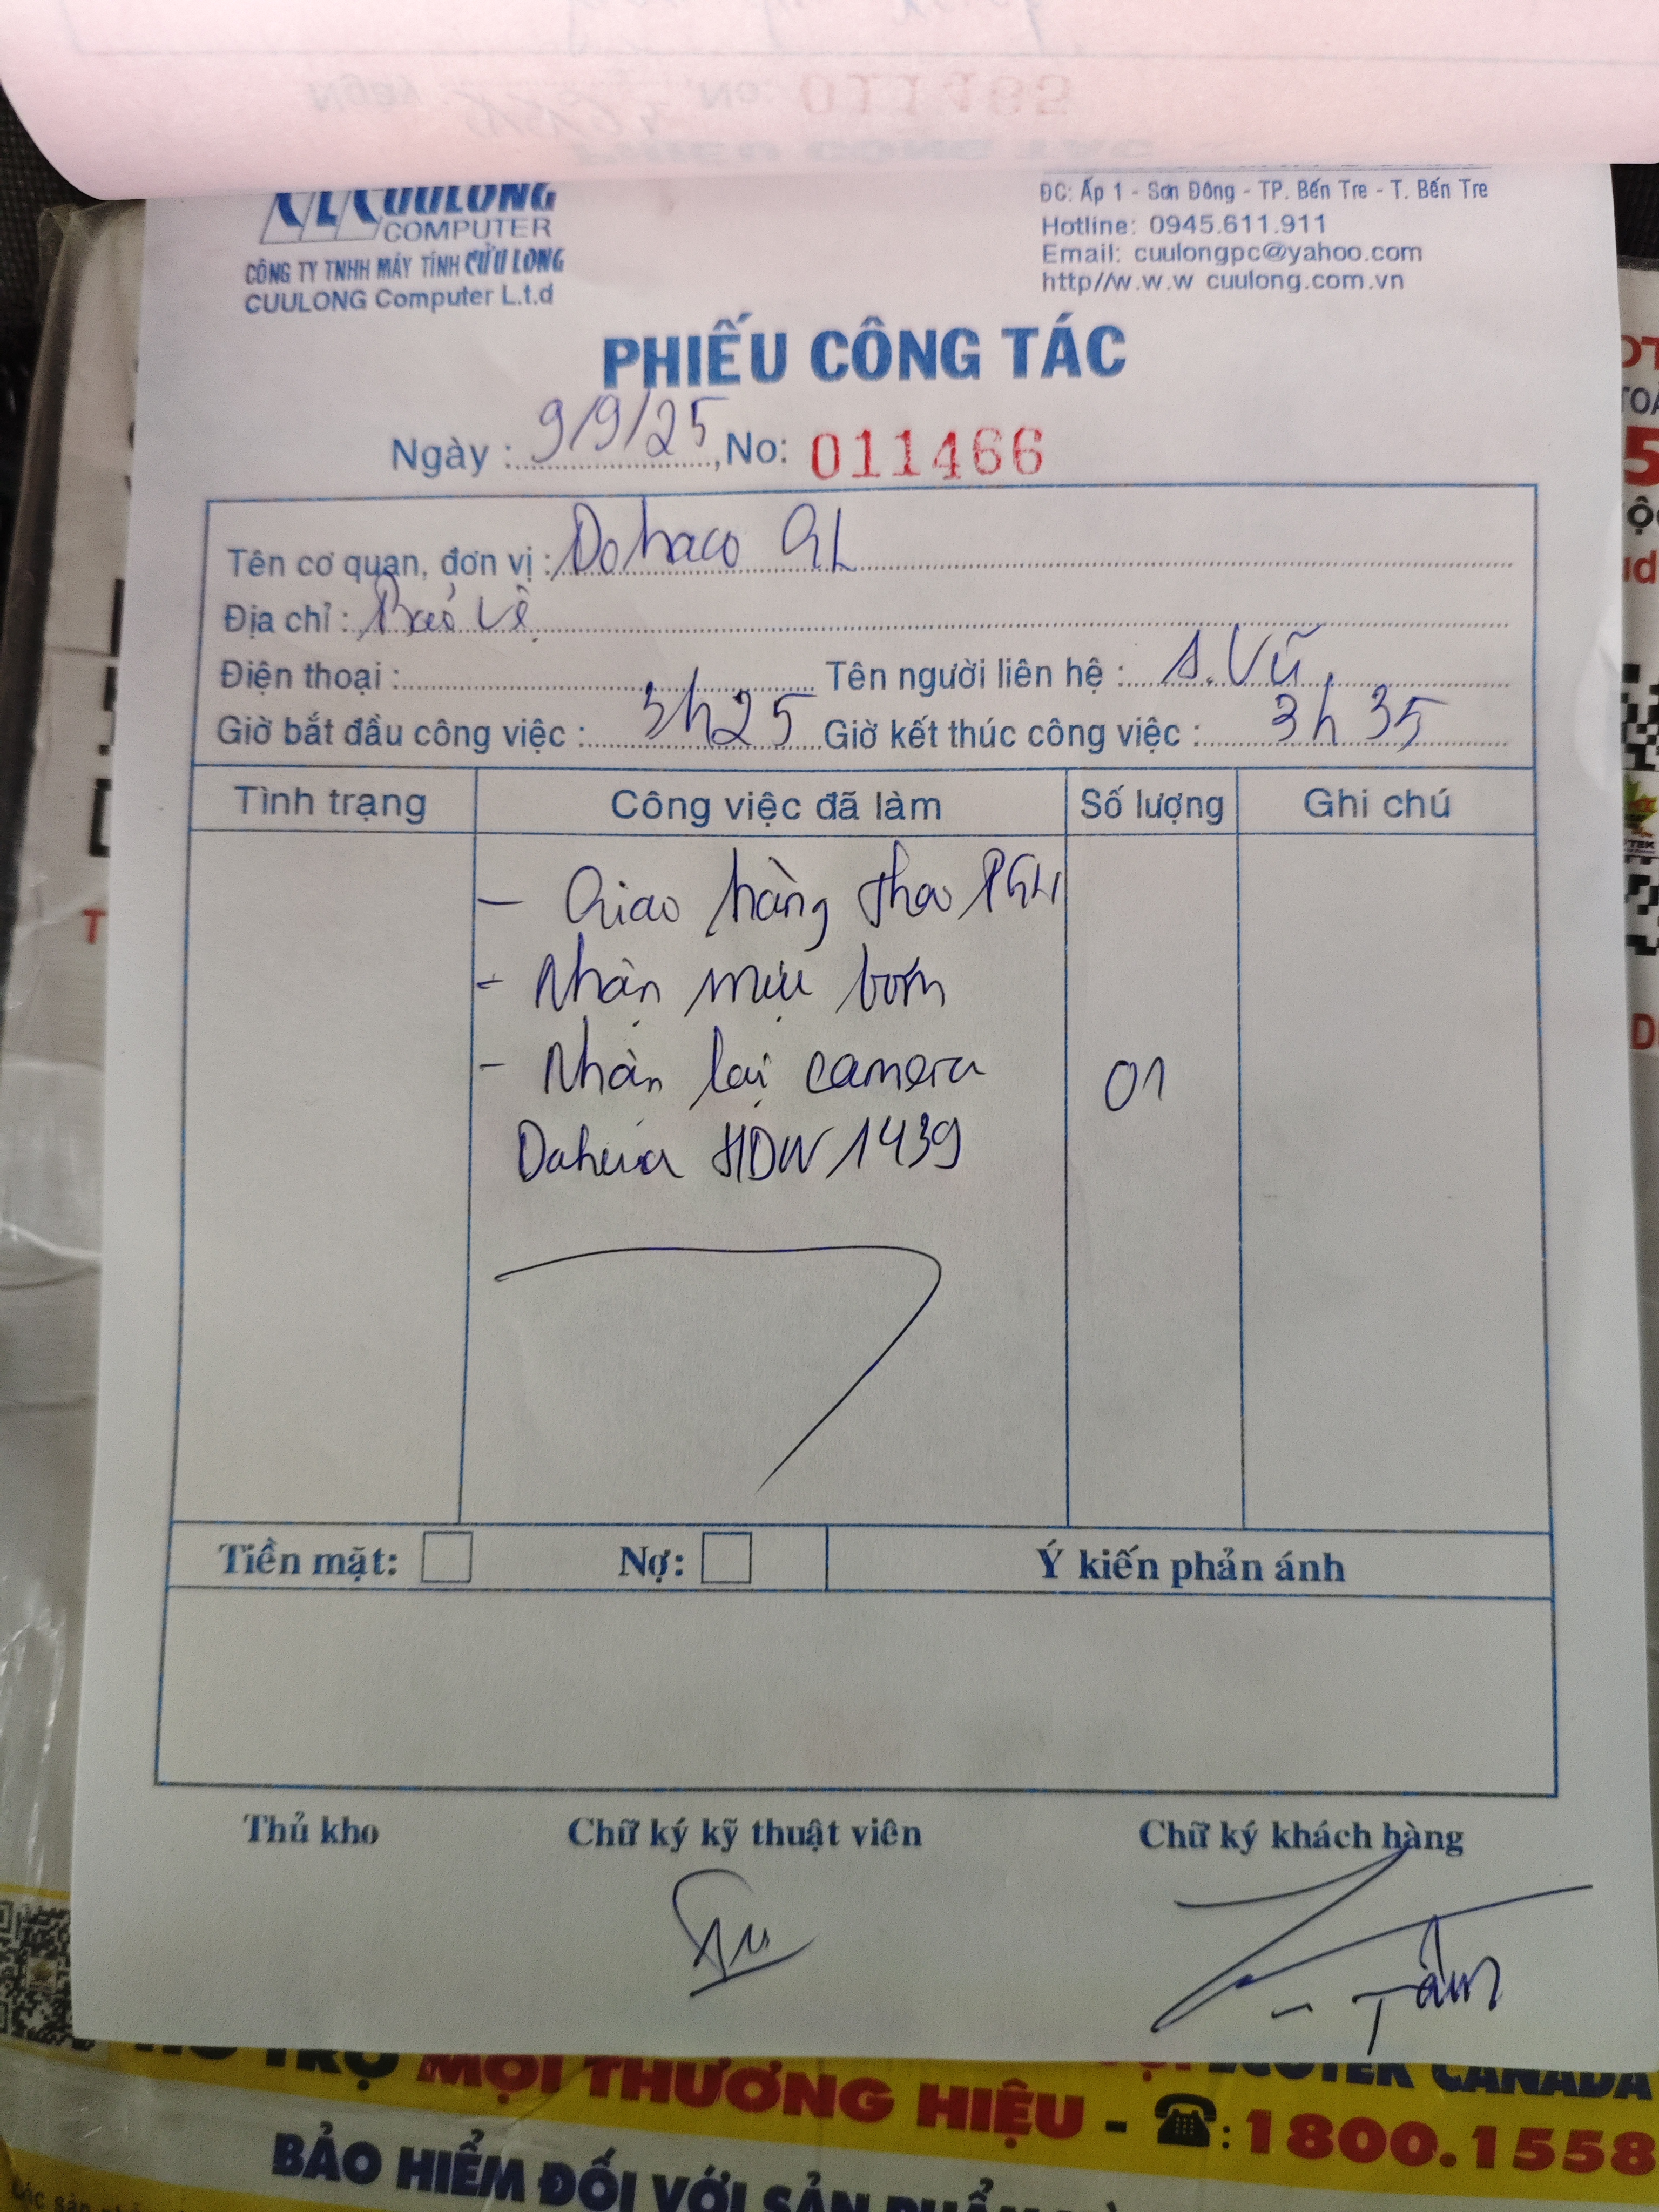 No: 011465
CUULONG
COMPUTER
CÔNG TY TNHH MÁY TÍNH CỬU LONG
CUULONG Computer L.t.d
ĐC: Ấp 1 - Sơn Đông - TP. Bến Tre - T. Bến Tre
Hotline: 0945.611.911
Email: cuulongpc@yahoo.com
http//w.w.w cuulong.com.vn
PHIẾU CÔNG TÁC
Ngày : 9/9/25, No: 011466
Tên cơ quan, đơn vị : Dohaco GL
Địa chỉ : Bảo vệ
Điện thoại : Tên người liên hệ : A. Vũ
Giờ bắt đầu công việc : 3h25 Giờ kết thúc công việc : 3h35
Tình trạng Công việc đã làm Số lượng Ghi chú
- Giao hàng theo PGH
- Nhận mực bơm
- Nhận lại camera 01
Dahua HDW 1439
Tiền mặt: Nợ: Ý kiến phản ánh
Thủ kho Chữ ký kỹ thuật viên Chữ ký khách hàng
Tâm
HỖ TRỢ MỌI THƯƠNG HIỆU - ☎: 1800.1558
ECOTEK CANADA
BẢO HIỂM ĐỐI VỚI SẢN PHẨM